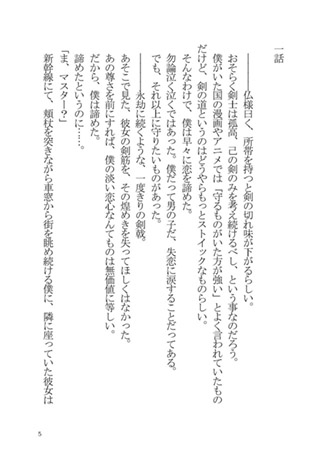 一話
――――仏様曰く、所帯を持つと剣の切れ味が下がるらしい。
おそらく剣士は孤高、己の剣のみを考え続けるべし、という事なのだろう。
僕がいた国の漫画やアニメでは「守るものがいた方が強い」とよく言われていたもの
だけど、剣の道というのはどうやらもっとストイックなものらしい。
そんなわけで、僕は早々に恋を諦めた。
勿論泣く泣くではあった。僕だって男の子だ、失恋に涙することだってある。
でも、それ以上に守りたいものがあった。
――――永劫に続くような、一度きりの剣戟。
あそこで見た、彼女の剣筋を、その煌めきを失ってほしくはなかった。
あの尊さを前にすれば、僕の淡い恋心なんてものは無価値に等しい。
だから、僕は諦めた。
諦めたというのに……。
「ま、マスター？」
新幹線にて、頬杖を突きながら車窓から街を眺め続ける僕に、隣に座っていた彼女は
5